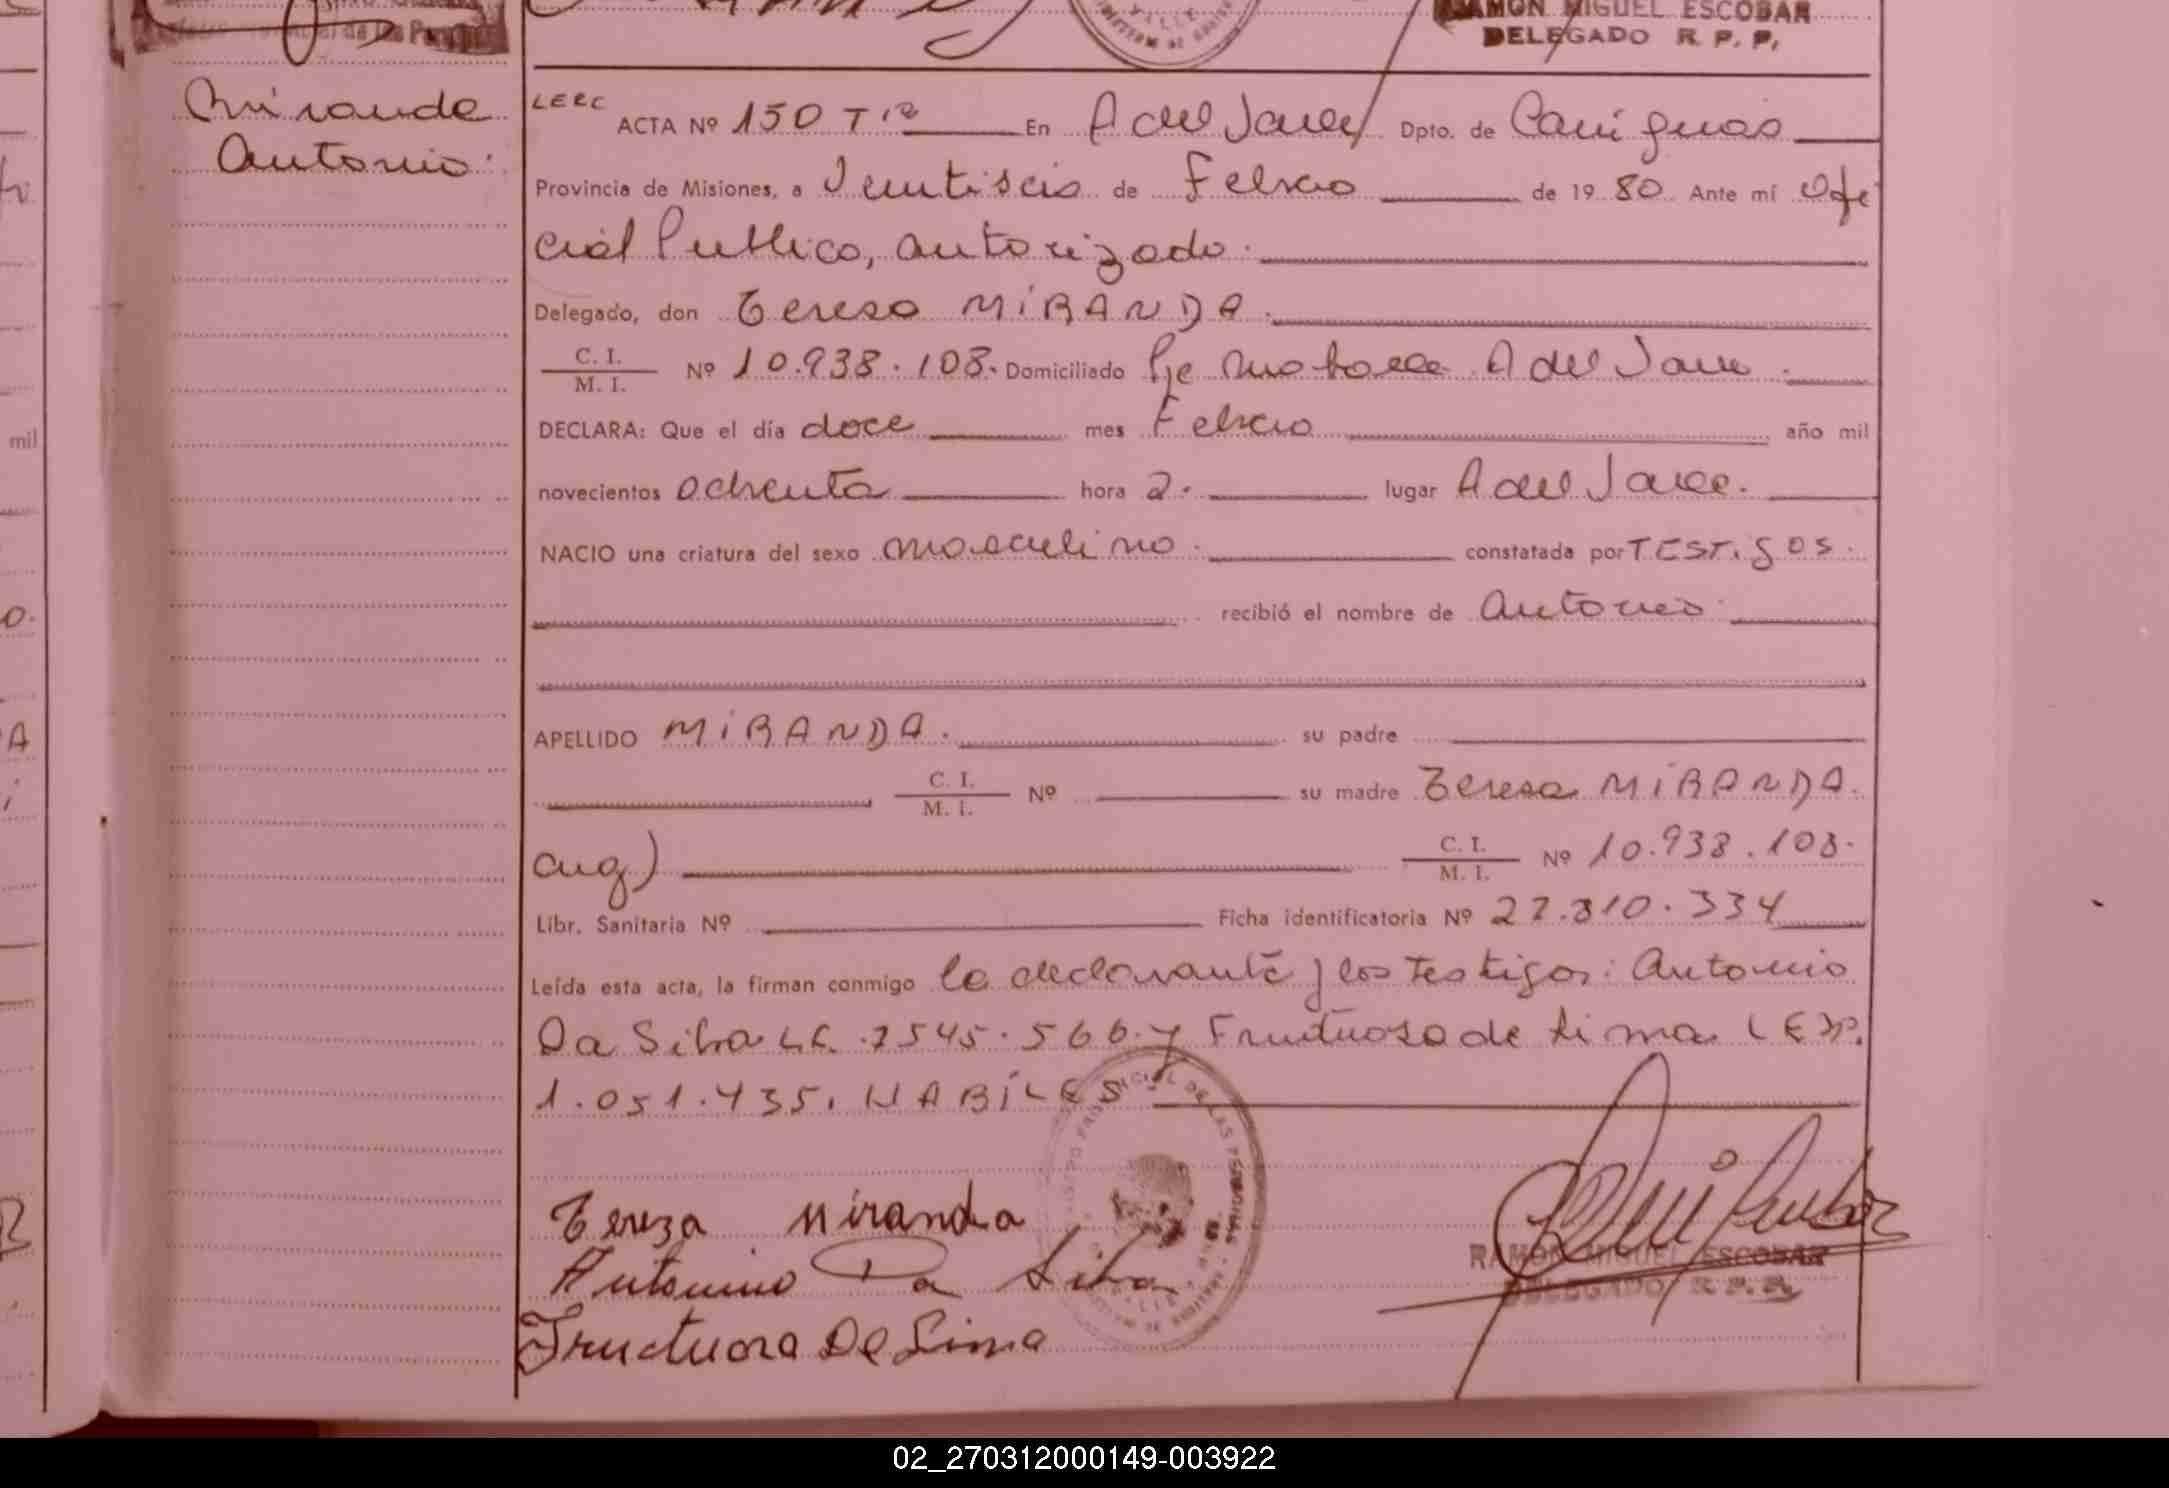 RAMON MIGUEL ESCOBAR
DELEGADO R. P. P.
Miranda
Antonio.
LERC
ACTA Nº 150 Tº En A del Valle Dpto. de Cainguas
Provincia de Misiones, a Veintiseis de Febrero de 19 80 Ante mí Ofi
cial Publico, autorizado.
Delegado, don Teresa MIRANDA.
C. I.
M. I.
Nº 10.938.108. Domiciliado A del Valle
DECLARA: Que el día doce mes Febrero año mil
novecientos ochenta hora 2. lugar A del Valle.
NACIO una criatura del sexo masculino. constatada por TESTigos.
recibió el nombre de Antonio.
APELLIDO MIRANDA. su padre
C. I.
M. I.
Nº su madre Teresa MIRANDA.
arg)
C. I.
M. I.
Nº 10.938.108.
Libr. Sanitaria Nº Ficha identificatoria Nº 27.810.334
Leída esta acta, la firman conmigo la declarante y los Testigos: Antonio
Da Silva 7545.566. y Fructuosa de Lima
1.051.435. HABILES
Tereza Miranda
Antonino Da Silva
Fructuosa De Lima
RAMON MIGUEL ESCOBAR
DELEGADO R. P. P.
mil
02_270312000149-003922